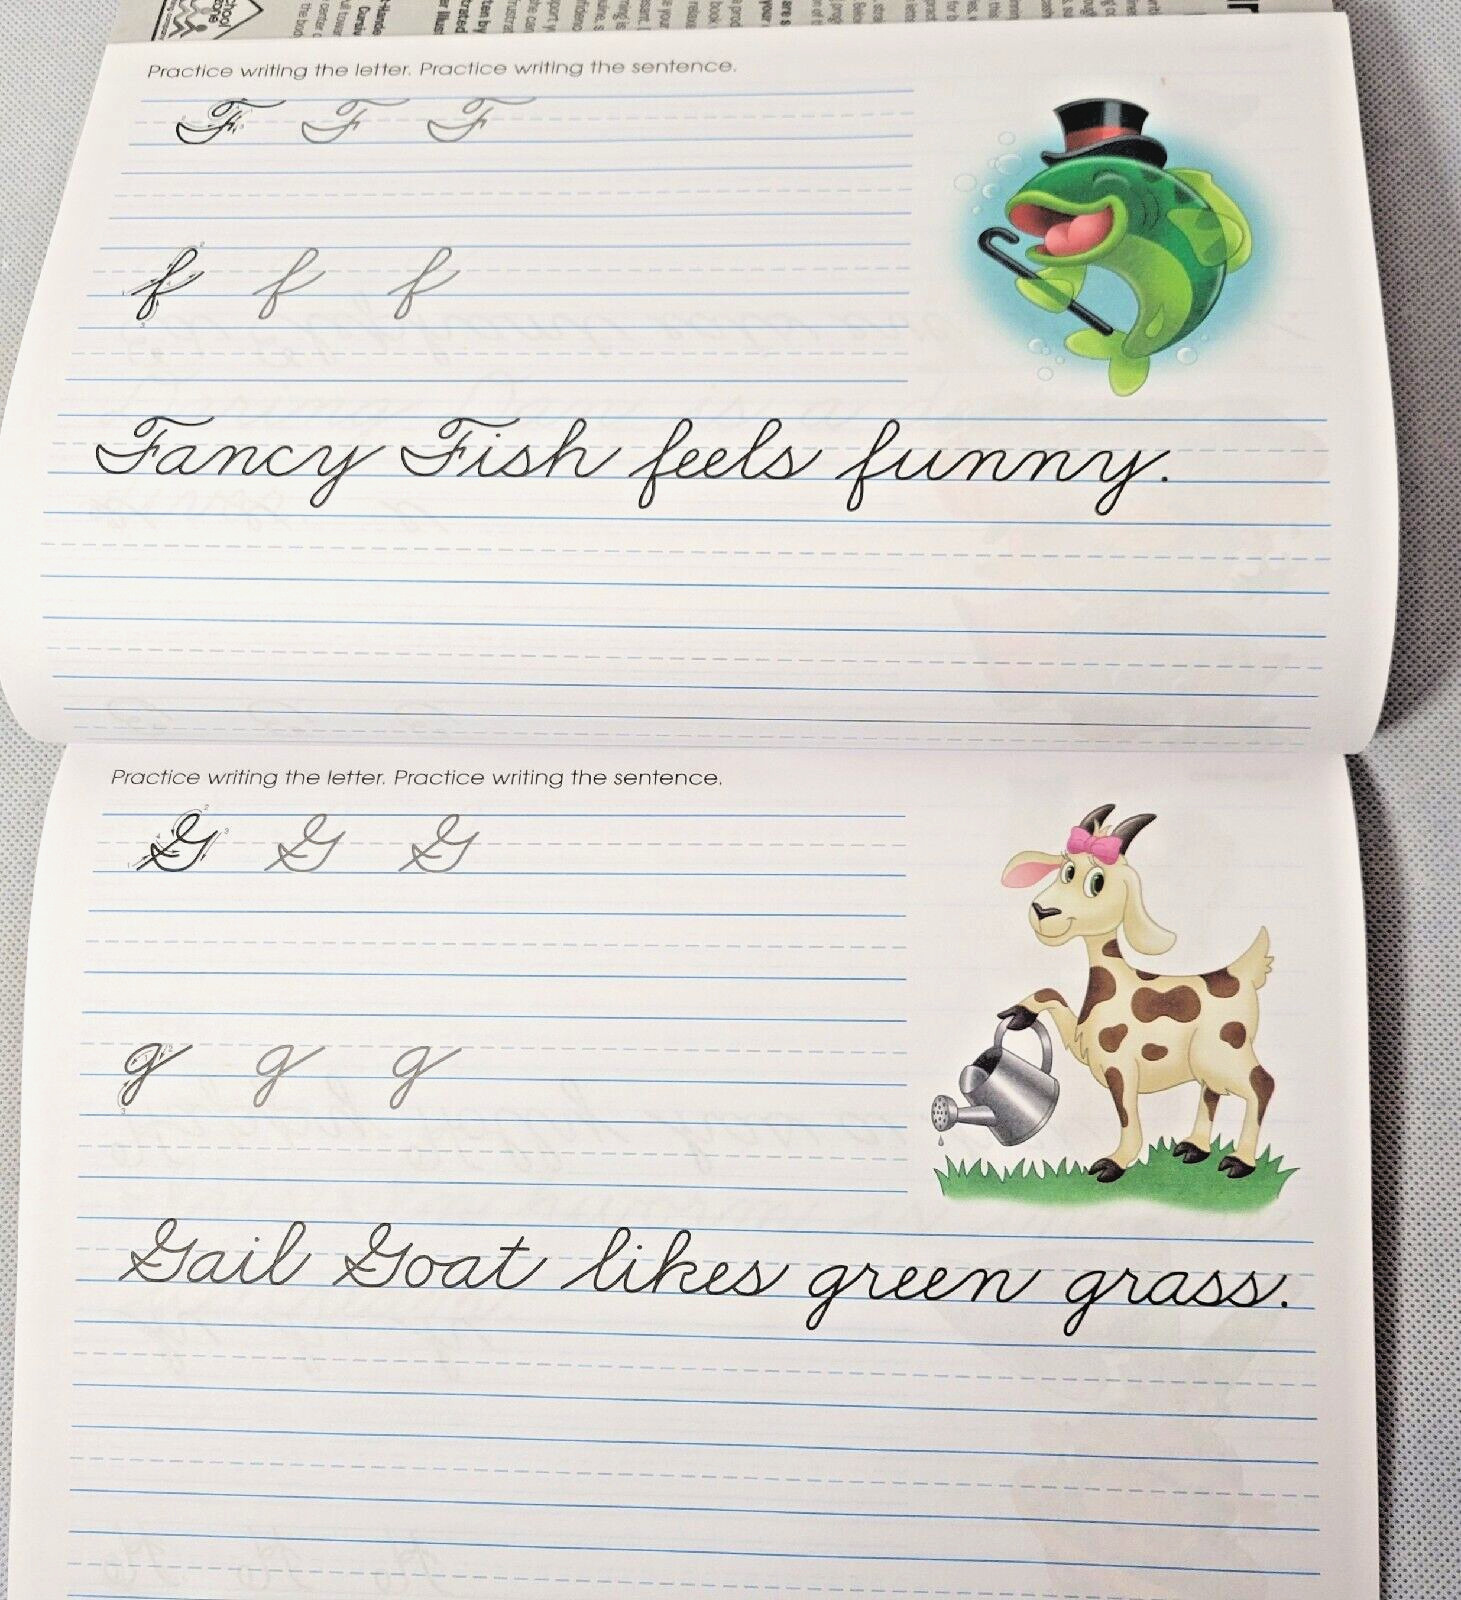 Practice writing the letter. Practice writing the sentence.
F F F
f f f
Fancy Fish feels funny.
Practice writing the letter. Practice writing the sentence.
G G G
g g g
Gail Goat likes green grass.